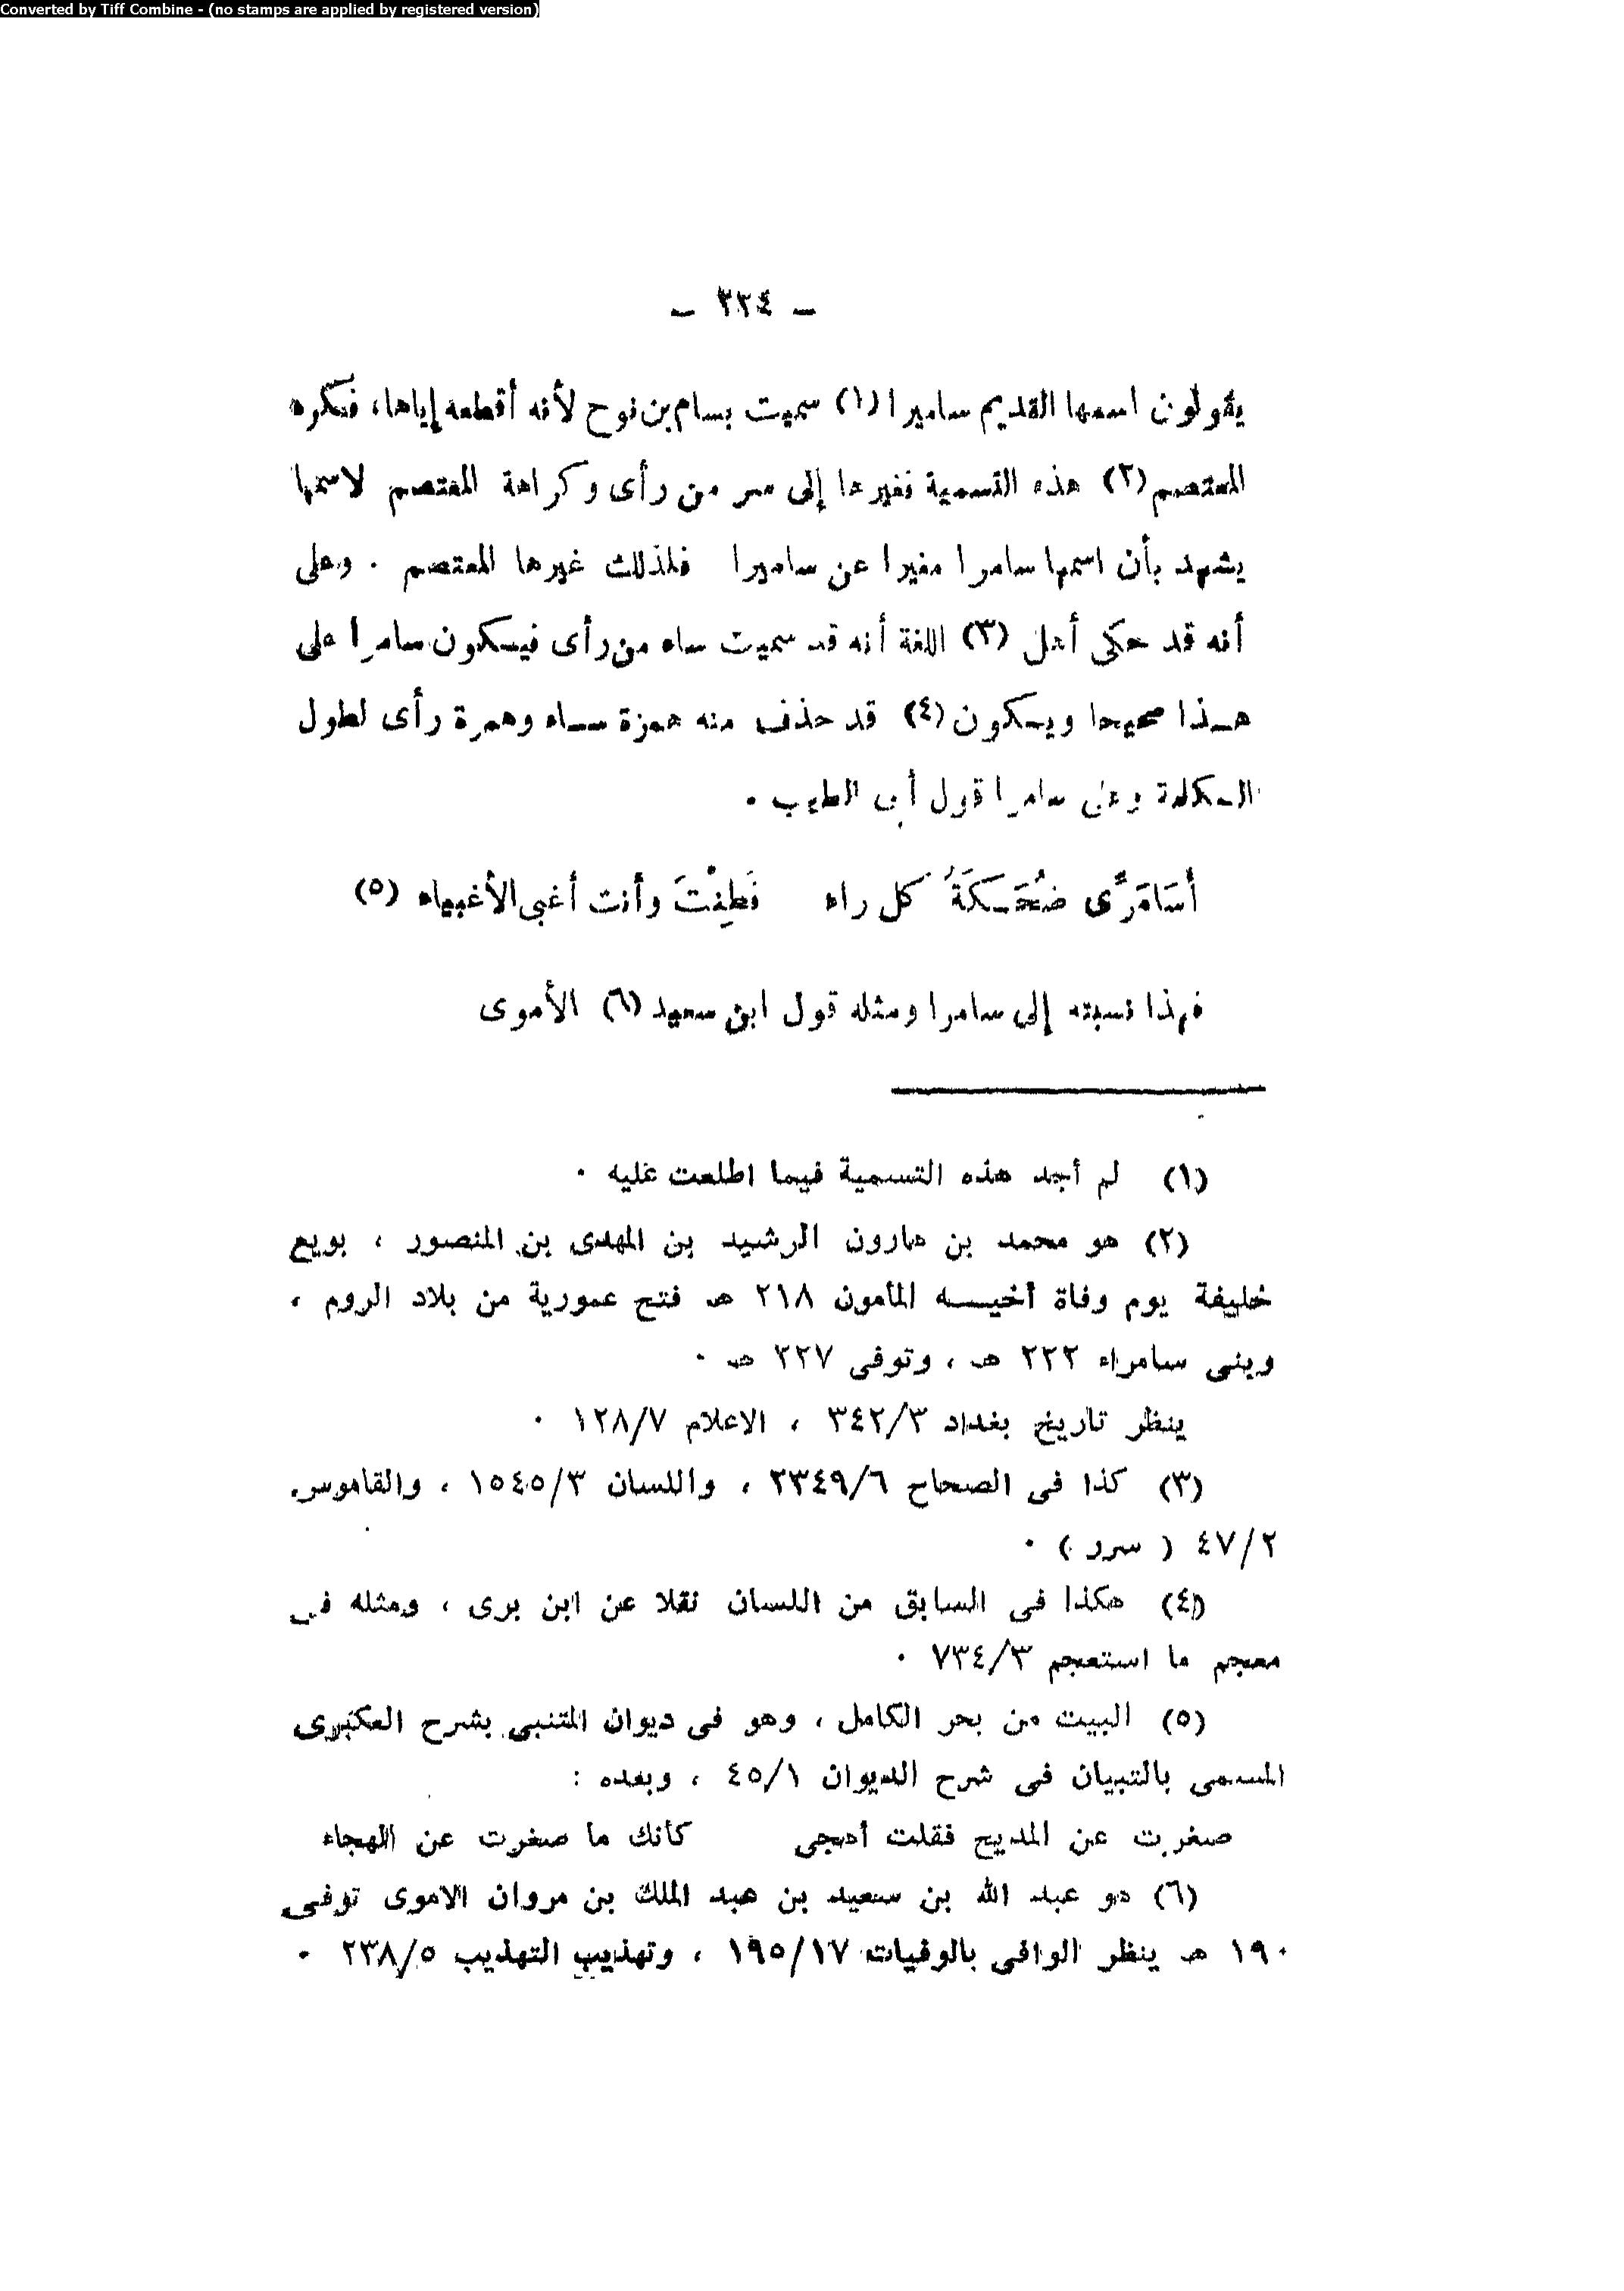 Converted by Tiff Combine - (no stamps are applied by registered version)
– ٢٣٤ –
يقولون اسمها القديم ساميرا (١) سميت بسام بن نوح لأنه أقطعه إياها، فكره
المعتصم (٢) هذه التسمية فغيرها إلى سر من رأى وكراهة المعتصم لاسمها
يشهد بأن اسمها سامرا مغيرا عن ساميرا فلذلك غيرها المعتصم . وعلى
أنه قد حكى أهل (٣) اللغة أنه قد سميت ساء من رأى فيكون سامرا على
هذا صحيحا ويكون (٤) قد حذف منه همزة ساء وهمزة رأى لطول
الكلمة وعلى سامرا قول أبى الطيب .
أَسَامَرِّى ضُحَكَةَ كل راء فَطِنْتَ وأنت أغبى الأغبياء (٥)
فهذا نسبته إلى سامرا ومثله قول ابن سعيد (٦) الأموى
(١) لم أجد هذه التسمية فيما اطلعت عليه .
(٢) هو محمد بن هارون الرشيد بن المهدى بن المنصور ، بويع
خليفة يوم وفاة أخيه المأمون ٢١٨ هـ فتح عمورية من بلاد الروم ،
وبنى سامراء ٢٢٢ هـ ، وتوفى ٢٢٧ هـ .
ينظر تاريخ بغداد ٣٤٢/٣ ، الاعلام ١٢٨/٧ .
(٣) كذا فى الصحاح ٢٣٤٩/٦ ، واللسان ١٥٤٥/٣ ، والقاموس
٤٧/٢ ( سرر ) .
(٤) هكذا فى السابق من اللسان نقلا عن ابن برى ، ومثله فى
معجم ما استعجم ٧٣٤/٣ .
(٥) البيت من بحر الكامل ، وهو فى ديوان المتنبى بشرح العكبرى
المسمى بالتبيان فى شرح الديوان ٤٥/١ ، وبعده :
صغرت عن المديح فقلت أهجى كأنك ما صغرت عن الهجاء
(٦) هو عبد الله بن سعيد بن عبد الملك بن مروان الاموى توفى
١٩٠ هـ ينظر الوافى بالوفيات ١٩٥/١٧ ، وتهذيب التهذيب ٢٣٨/٥ .